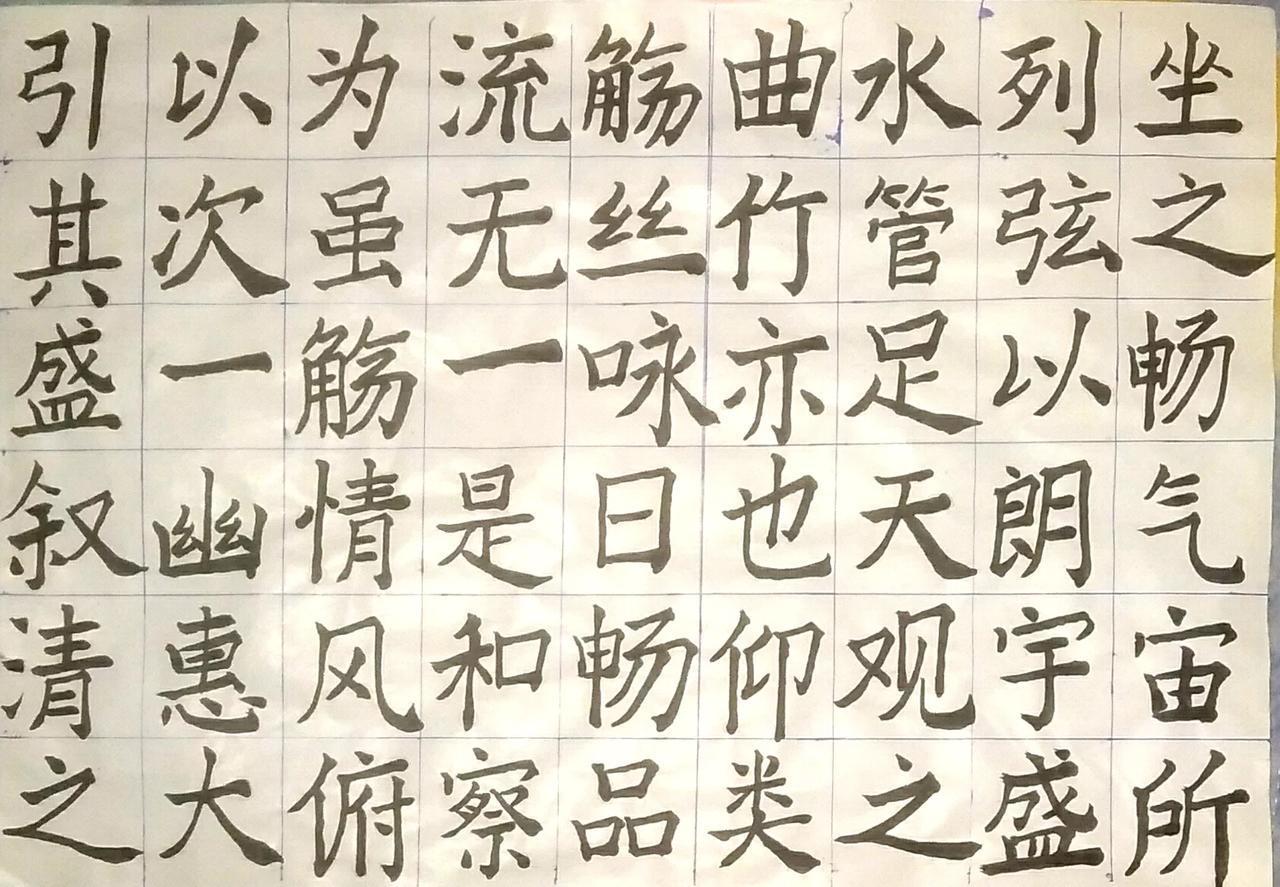 引以为流觞曲水列坐
其次虽无丝竹管弦之
盛一觞一咏亦足以畅
叙幽情是日也天朗气
清惠风和畅仰观宇宙
之大俯察品类之盛所